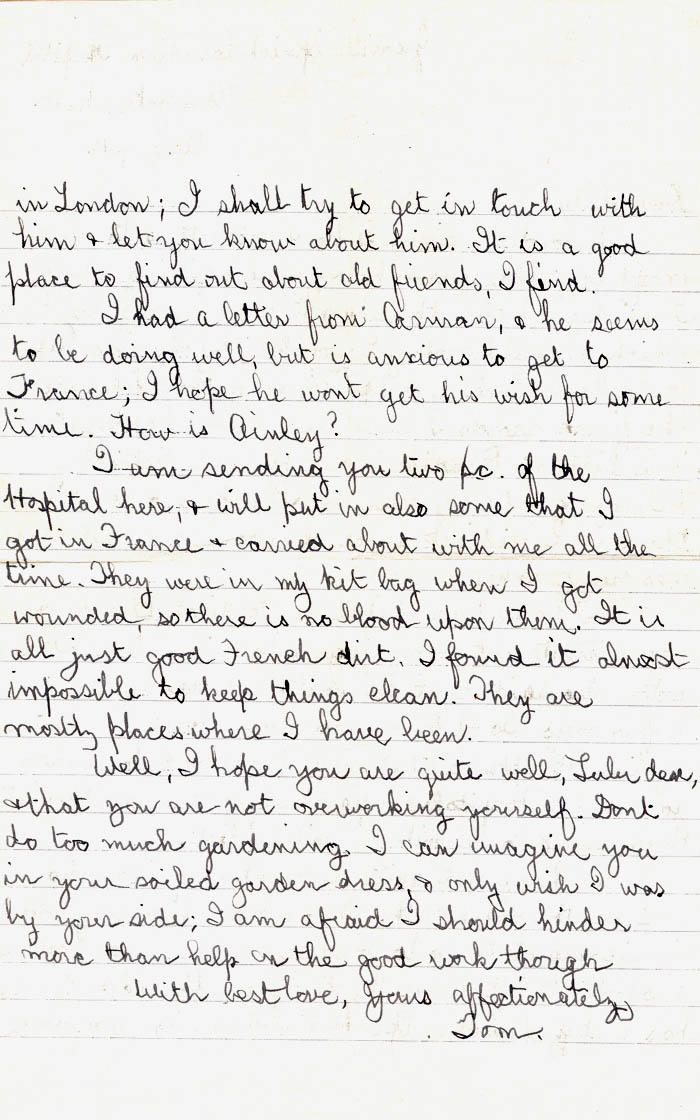 in London; I shall try to get in touch with
him & let you know about him. It is a good
place to find out about old friends, I find.
I had a letter from Carman, & he seems
to be doing well, but is anxious to get to
France; I hope he wont get his wish for some
time. How is Ainley?
I am sending you two pc. of the
Hospital here, & will put in also some that I
got in France & carried about with me all the
time. They were in my kit bag when I got
wounded, so there is no blood upon them. It is
all just good French dirt. I found it almost
impossible to keep things clean. They are
mostly places where I have been.
Well, I hope you are quite well, Lulu dear,
& that you are not overworking yourself. Dont
do too much gardening. I can imagine you
in your soiled garden dress, & only wish I was
by your side; I am afraid I should hinder
more than help in the good work though
With best love, yours affectionately
Tom.